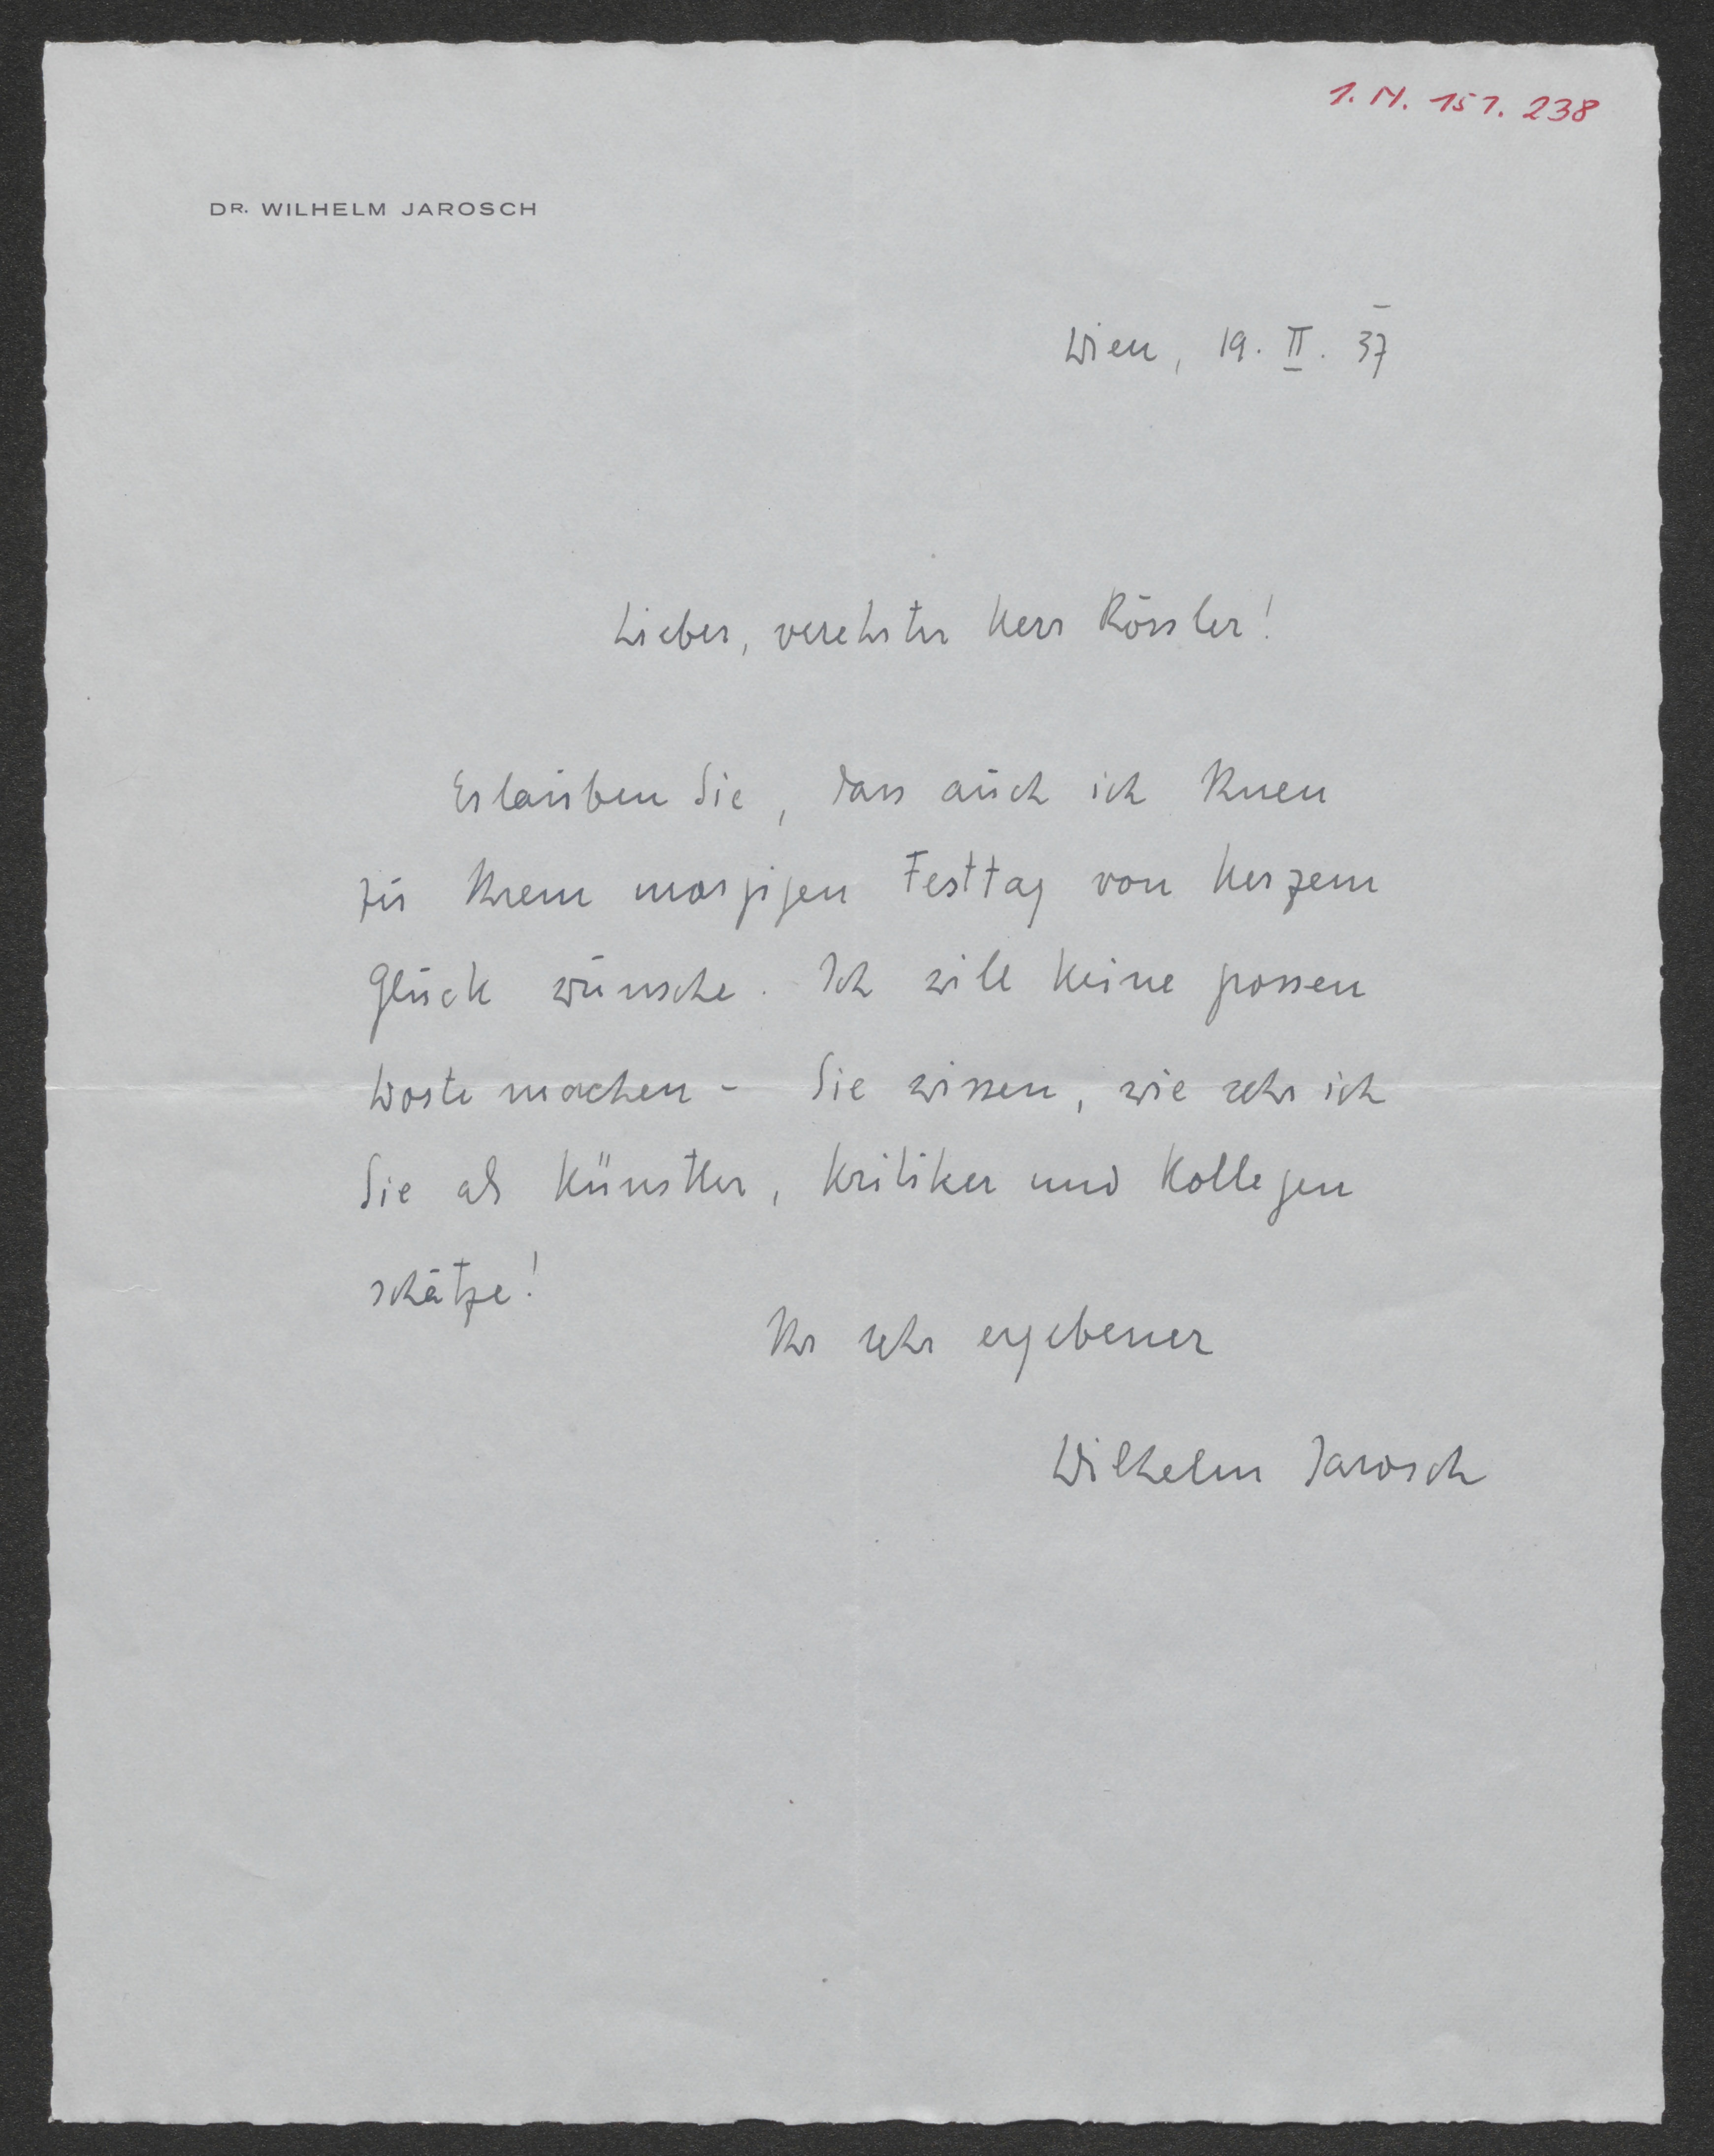 1. N. 151. 238
DR. WILHELM JAROSCH
Wien, 19. II. 37
Lieber, verehrter Herr Rössler!
Erlauben Sie, dass auch ich Ihnen
zu Ihrem morgigen Festtag von Herzem
Glück wünsche. Ich will keine grossen
Worte machen - Sie wissen, wie sehr ich
Sie als Künstler, Kritiker und Kollegen
schätze!
Ihr sehr ergebener
Wilhelm Jarosch